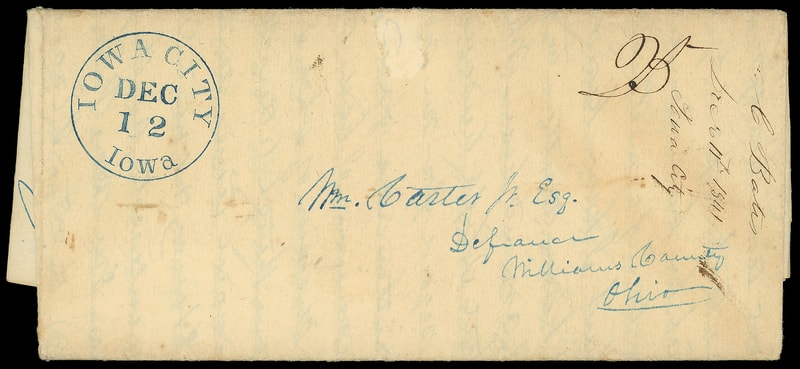 IOWA CITY
DEC
12
Iowa
25
Wm. Carter Jr. Esq.
Defiance
Williams County
Ohio
C Bates
Dec 11th 1841
Iowa City